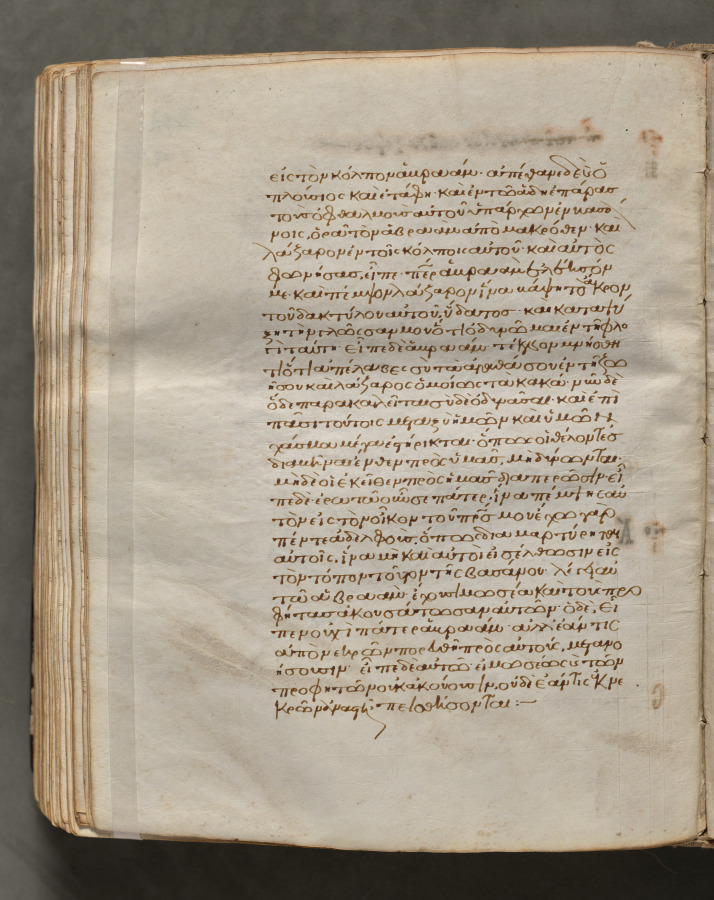 εἰς τὸν κόλπον ἀβρααμ· ἀπέθανε δὲ καὶ ὁ
πλούσιος καὶ ἐτάφη· καὶ ἐν τῶ ἅδη ἐπάρας
τοὺς ὀφθαλμοὺς αὐτοῦ ὑπάρχων ἐν βασά
νοις, ὁρᾶ τὸν ἀβρααμ ἀπὸ μακρόθεν· καὶ
λάζαρον ἐν τοῖς κόλποις αὐτοῦ· καὶ αὐτὸς
φωνήσας, εἶπε· περ ἀβρααμ ἐλέησόν
με· καὶ πέμψον λάζαρον ἵνα βάψη τὸ ἄκρον
τοῦ δακτύλου αὐτοῦ ὕδατος· καὶ καταψύ
ξη τὴν γλῶσσαν μου ὅτι ὀδυνῶμαι ἐν τῆ φλο
γὶ ταύτη· εἶπε δὲ ἀβρααμ· τέκνον μνήσθη
τι ὅτι ἀπέλαβες σὺ τὰ ἀγαθά σου ἐν τῆ ζωῆ
σου καὶ λάζαρος ὁμοίως τὰ κακά· νῦν δὲ
ὅδε παρακαλεῖται σὺ δὲ ὀδυνᾶσαι· καὶ ἐπὶ
πᾶσι τούτοις μεταξὺ ἡμῶν καὶ ὑμῶν
χάσμα μέγα ἐστήρικται· ὅπως οἱ θέλοντες
διαβῆναι ἔνθεν πρὸς ὑμᾶς, μὴ δύνωνται·
μηδὲ οἱ ἐκεῖθεν πρὸς ἡμᾶς διαπερῶσιν· εἶ
πε δὲ· ἐρωτῶ οὖν σε πάτερ, ἵνα πέμψης αὐ
τὸν εἰς τὸν οἶκον τοῦ πρς μου ἔχω γὰρ
πέντε ἀδελφούς, ὅπως διαμαρτύρηται
αὐτοῖς, ἵνα μὴ καὶ αὐτοὶ εἰσέλθωσιν εἰς
τὸν τόπον τοῦτον τῆς βασάνου· λέγει αὐ
τῶ ἀβρααμ· ἔχουσι μωσέα καὶ τοὺς προ
φήτας ἀκουσάτωσαν αὐτῶν· ὁ δὲ, εἶ
πεν οὐχὶ πάτερ ἀβρααμ· ἀλλ' ἐάν τις
ἀπὸ νεκρῶν πορευθῆ πρὸς αὐτούς, μετανο
ήσουσιν· εἶπε δὲ αὐτῶ· εἰ μωσέως καὶ τῶν
προφητῶν οὐκ ἀκούουσιν, οὐδὲ ἐάν τις ἐκ νε
κρῶν ἀναστῆ· πεισθήσονται: